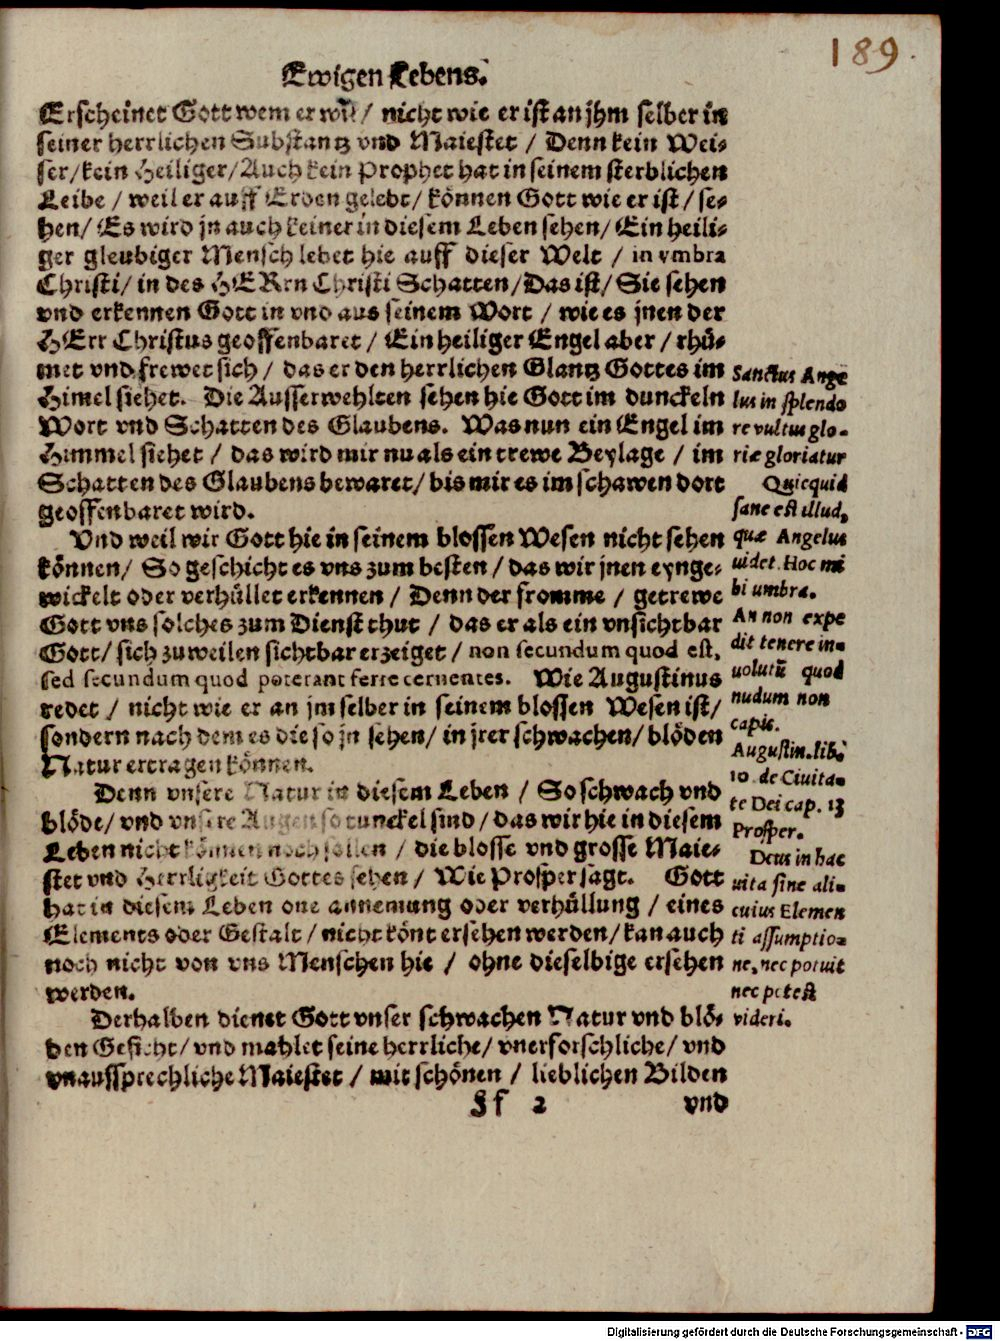 189.
Ewigen Lebens.
Erscheinet Gott wem er wil / nicht wie er ist an jhm selber in
seiner herrlichen Substantz vnd Maiestet / Denn kein Wei-
ser / kein Heiliger / Auch kein Prophet hat in seinem sterblichen
Leibe / weil er auff Erden gelebt / können Gott wie er ist / se-
hen / Es wird jn auch keiner in diesem Leben sehen / Ein heili-
ger gleubiger Mensch lebet hie auff dieser Welt / in vmbra
Christi / in des HERrn Christi Schatten / Das ist / Sie sehen
vnd erkennen Gott in vnd aus seinem Wort / wie es jnen der
HErr Christus geoffenbaret / Ein heiliger Engel aber / rhü-
met vnd frewet sich / das er den herrlichen Glantz Gottes im
Himel siehet. Die Ausserwehlten sehen hie Gott im dunckeln
Wort vnd Schatten des Glaubens. Was nun ein Engel im
Himmel siehet / das wird mir nu als ein trewe Beylage / im
Schatten des Glaubens bewaret / bis mir es im schawen dort
geoffenbaret wird.
Vnd weil wir Gott hie in seinem blossen Wesen nicht sehen
können / So geschicht es vns zum besten / das wir jnen eynge-
wickelt oder verhüllet erkennen / Denn der fromme / getrewe
Gott vns solches zum Dienst thut / das er als ein vnsichtbar
Gott / sich zuweilen sichtbar erzeiget / non secundum quod est,
sed secundum quod poterant ferre cernentes. Wie Augustinus
redet / nicht wie er an jm selber in seinem blossen Wesen ist /
sondern nach dem es die so jn sehen / in jrer schwachen / blöden
Natur ertragen können.
Denn vnsere Natur in diesem Leben / So schwach vnd
blöde / vnd vnsere Augen so tunckel sind / das wir hie in diesem
Leben nicht können noch sollen / die blosse vnd grosse Maie-
stet vnd Herrligkeit Gottes sehen / Wie Prosper sagt. Gott
hat in diesem Leben one annemung oder verhüllung / eines
Elements oder Gestalt / nicht könt ersehen werden / kan auch
noch nicht von vns Menschen hie / ohne dieselbige ersehen
werden.
Derhalben dienet Gott vnser schwachen Natur vnd blö-
den Gesicht / vnd mahlet seine herrliche / vnerforschliche / vnd
vnaussprechliche Maiestet / mit schönen / lieblichen Bilden
Ff 2 vnd
Sanctus Ange
lus in splendo
re vultus glo-
riæ gloriatur
Quicquid
sane est illud,
quæ Angelus
uidet. Hoc mi
hi umbra.
An non expe
dit tenere in-
uolutũ quod
nudum non
capis.
Augustin. lib.
10. de Ciuita-
te Dei cap. 13
Prosper.
Deus in hac
uita sine ali-
cuius Elemen
ti assumptio-
ne, nec potuit
nec potest
videri.
Digitalisierung gefördert durch die Deutsche Forschungsgemeinschaft - DFG